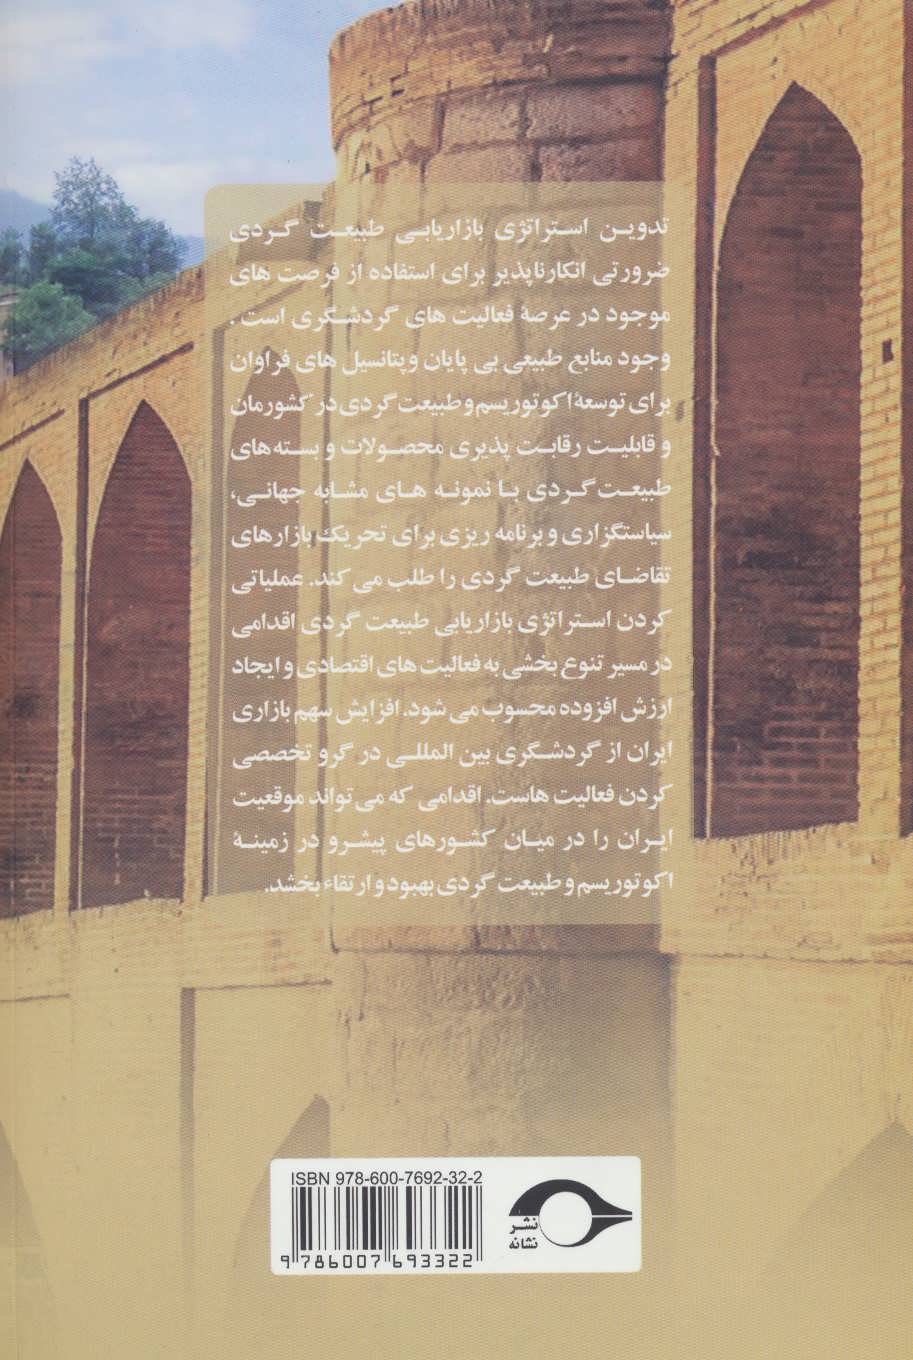 تدوین استراتژی بازاریابی طبیعت گردی
ضرورتی انکارناپذیر برای استفاده از فرصت های
موجود در عرصۀ فعالیت های گردشگری است.
وجود منابع طبیعی بی پایان و پتانسیل های فراوان
برای توسعۀ اکوتوریسم و طبیعت گردی در کشورمان
و قابلیت رقابت پذیری محصولات و بسته های
طبیعت گردی با نمونه های مشابه جهانی،
سیاستگزاری و برنامه ریزی برای تحریک بازارهای
تقاضای طبیعت گردی را طلب می کند. عملیاتی
کردن استراتژی بازاریابی طبیعت گردی اقدامی
در مسیر تنوع بخشی به فعالیت های اقتصادی و ایجاد
ارزش افزوده محسوب می شود. افزایش سهم بازاری
ایران از گردشگری بین المللی در گرو تخصصی
کردن فعالیت هاست. اقدامی که می تواند موقعیت
ایران را در میان کشورهای پیشرو در زمینۀ
اکوتوریسم و طبیعت گردی بهبود و ارتقاء بخشد.
ISBN 978-600-7692-32-2
9 786007 693322
نشر
نشانه